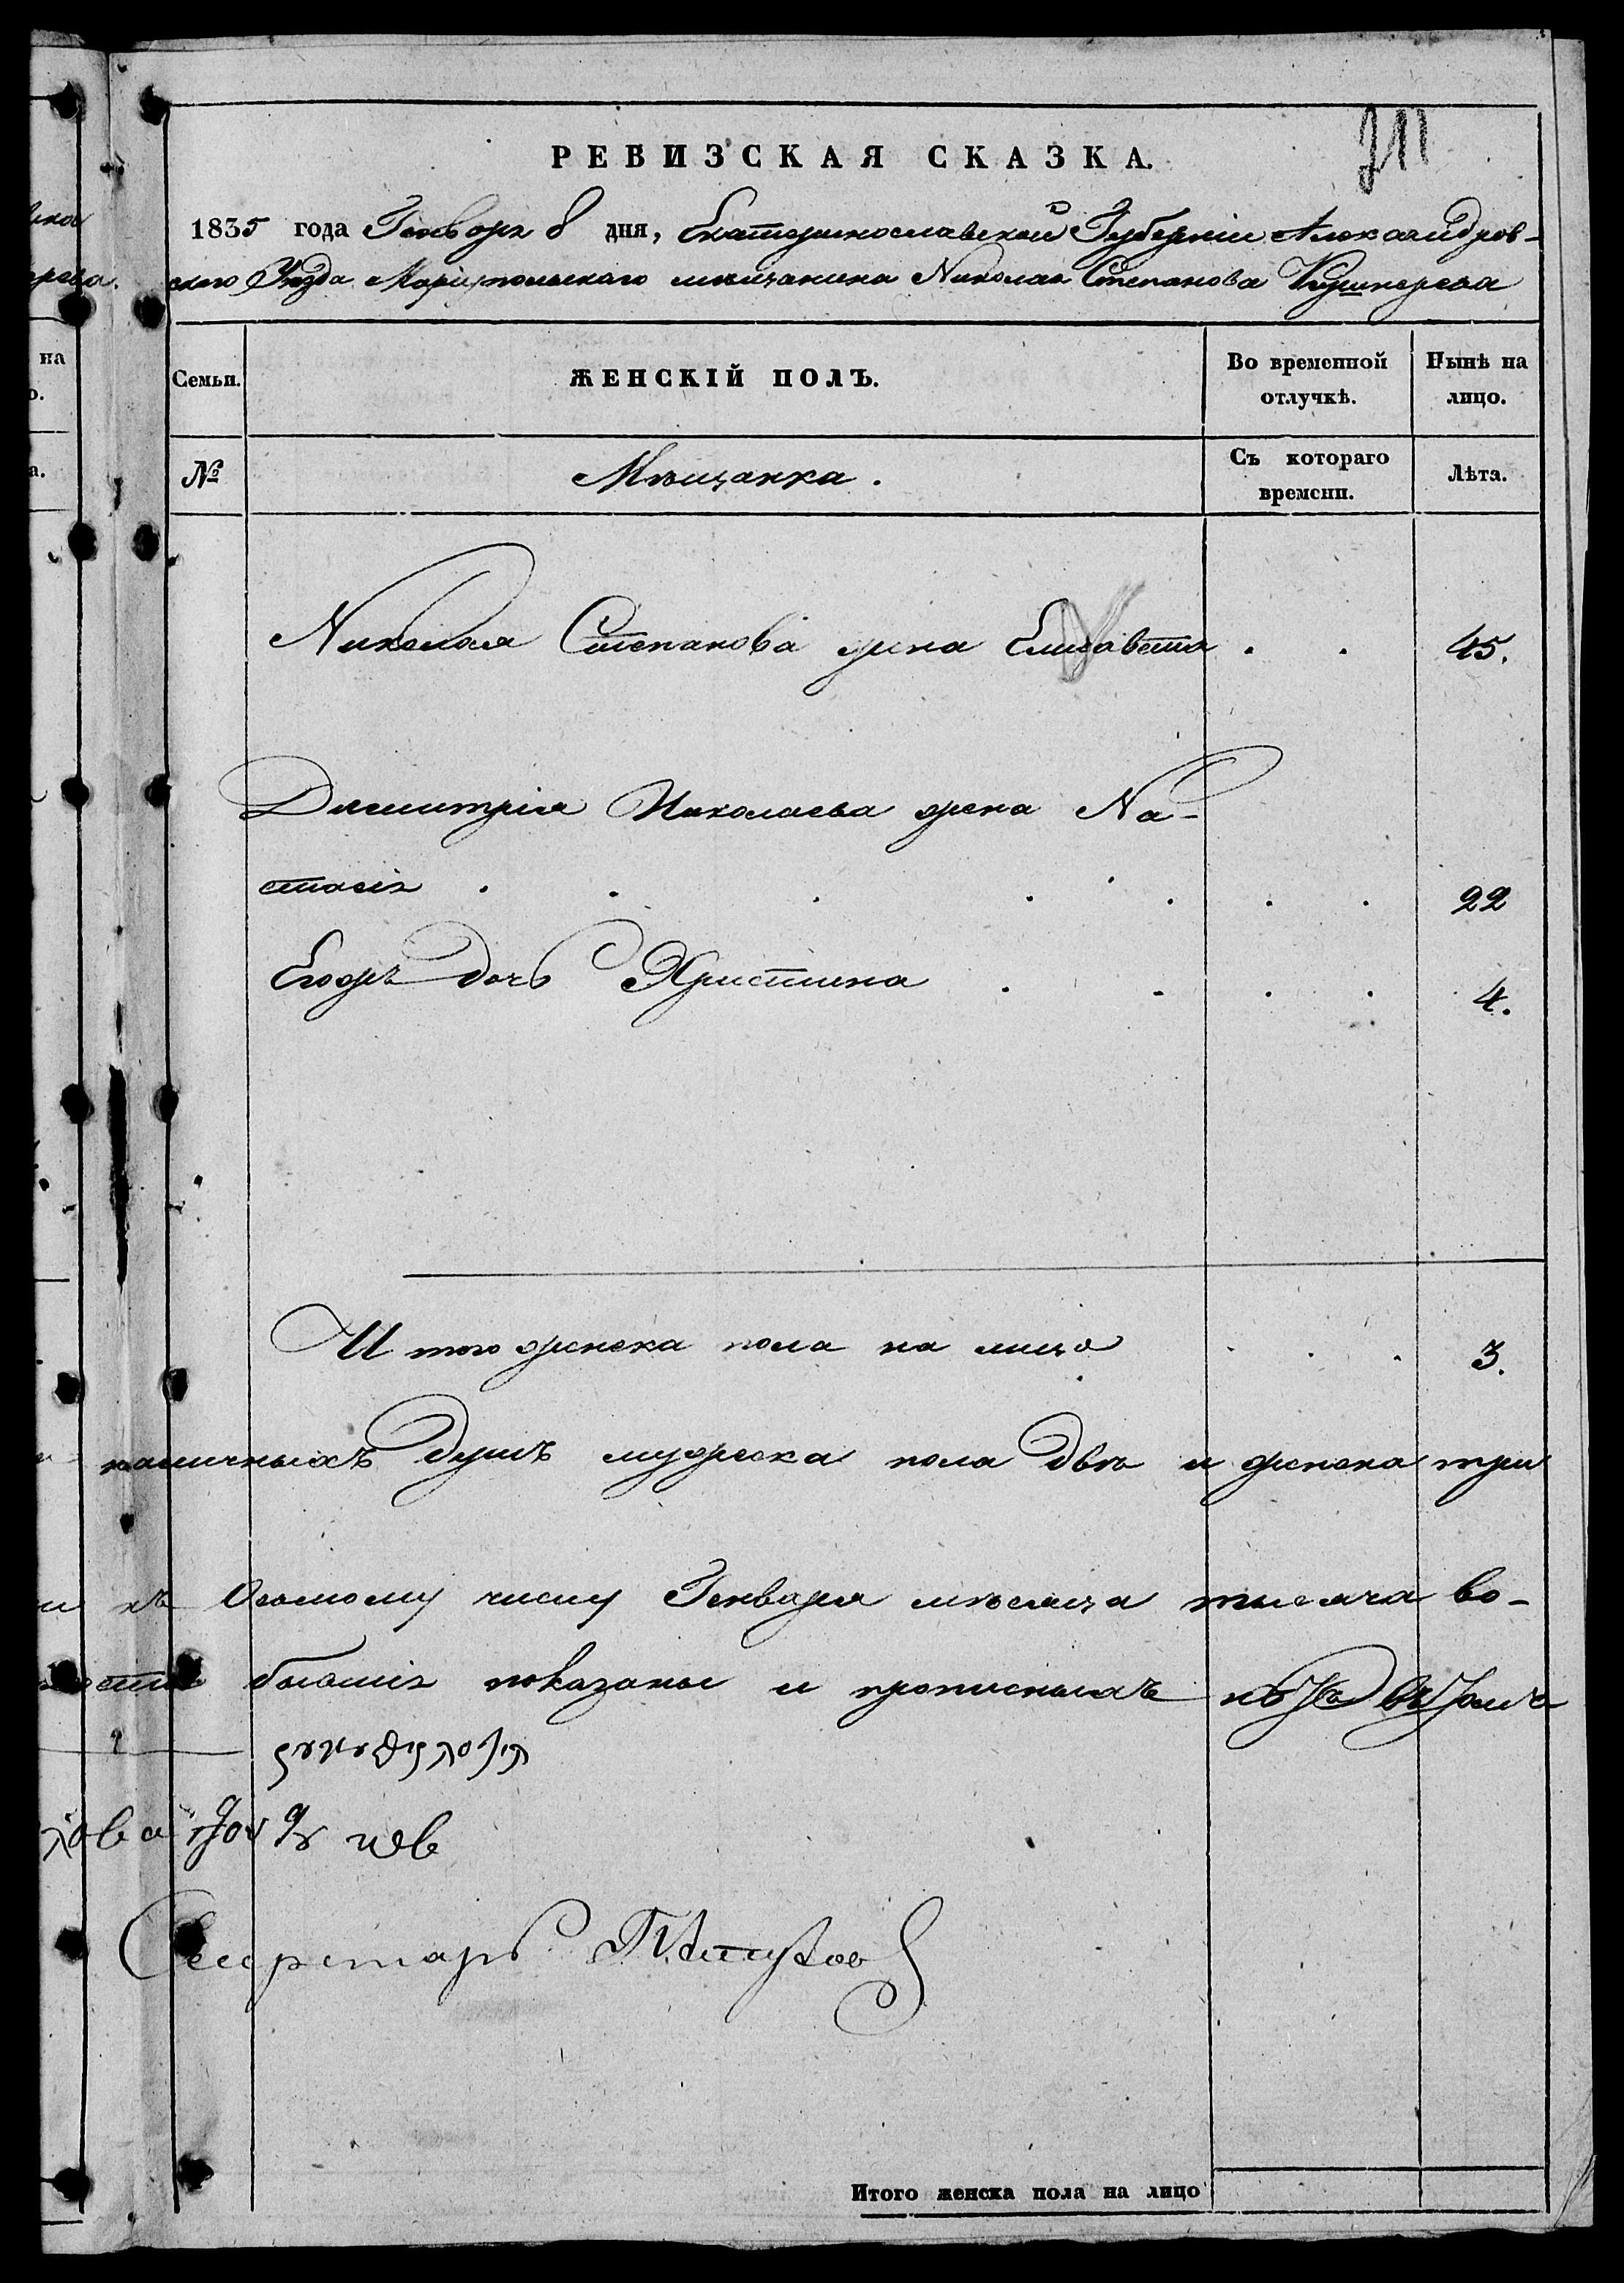 211
РЕВИЗСКАЯ СКАЗКА.
1835 года Генваря 8 дня, Екатеринославской Губерніи Александров-
ского Уезда Маріупольского мѣщанина Николая Степанова Кушнерева
Семьи. ЖЕНСКІЙ ПОЛЪ. Во временной отлучкѣ. Нынѣ на лицо.
№ Мѣщанка. Съ котораго времени. Лѣта.
Николая Степанова жена Елисавета . . 45.
Димитрія Николаева жена На-
стасія . . . . . . . 22
Егоръ дочь Христина . . . . 4.
Итого женска пола на лицо . . . 3.
наличныхъ душъ мужеска пола двѣ и женска три
къ Осьмому числу Генваря мѣсяца тысяча во-
бывшія показаны и прописныхъ
Секретарь
Итого женска пола на лицо